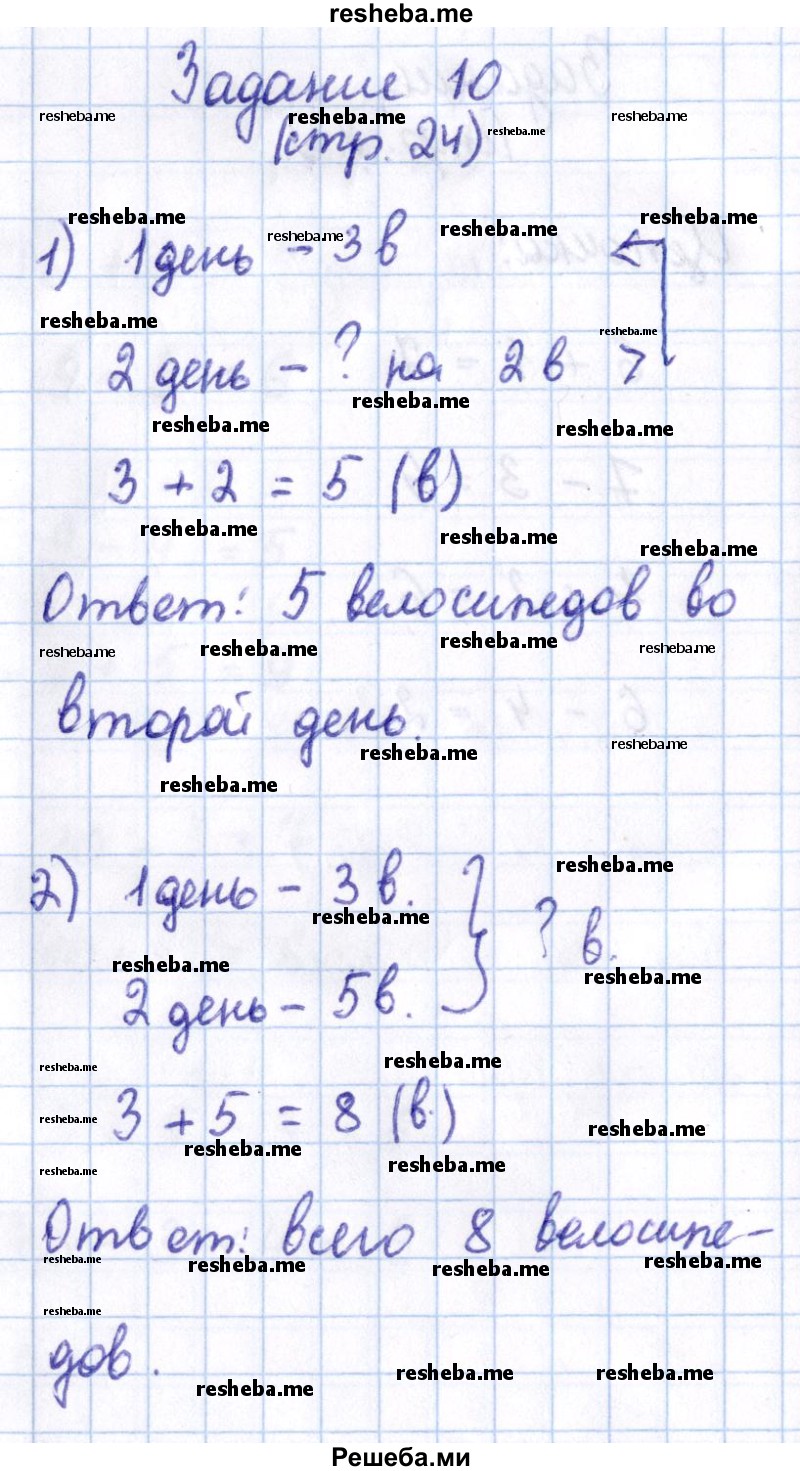 resheba.me
Задание 10
resheba.me resheba.me resheba.me
(стр. 24) resheba.me
resheba.me resheba.me resheba.me resheba.me
1) 1 день - 3 в
resheba.me resheba.me
2 день - ? на 2 в >
resheba.me
resheba.me resheba.me
3 + 2 = 5 (в)
resheba.me resheba.me resheba.me
Ответ: 5 велосипедов во
resheba.me resheba.me resheba.me resheba.me
второй день.
resheba.me resheba.me
resheba.me
2) 1 день - 3 в.
resheba.me
resheba.me
? в.
resheba.me resheba.me
2 день - 5 в.
resheba.me resheba.me
3 + 5 = 8 (в.)
resheba.me resheba.me
resheba.me resheba.me resheba.me
Ответ: всего 8 велосипе-
resheba.me resheba.me resheba.me resheba.me
resheba.me
дов.
resheba.me resheba.me resheba.me
Решеба.ми